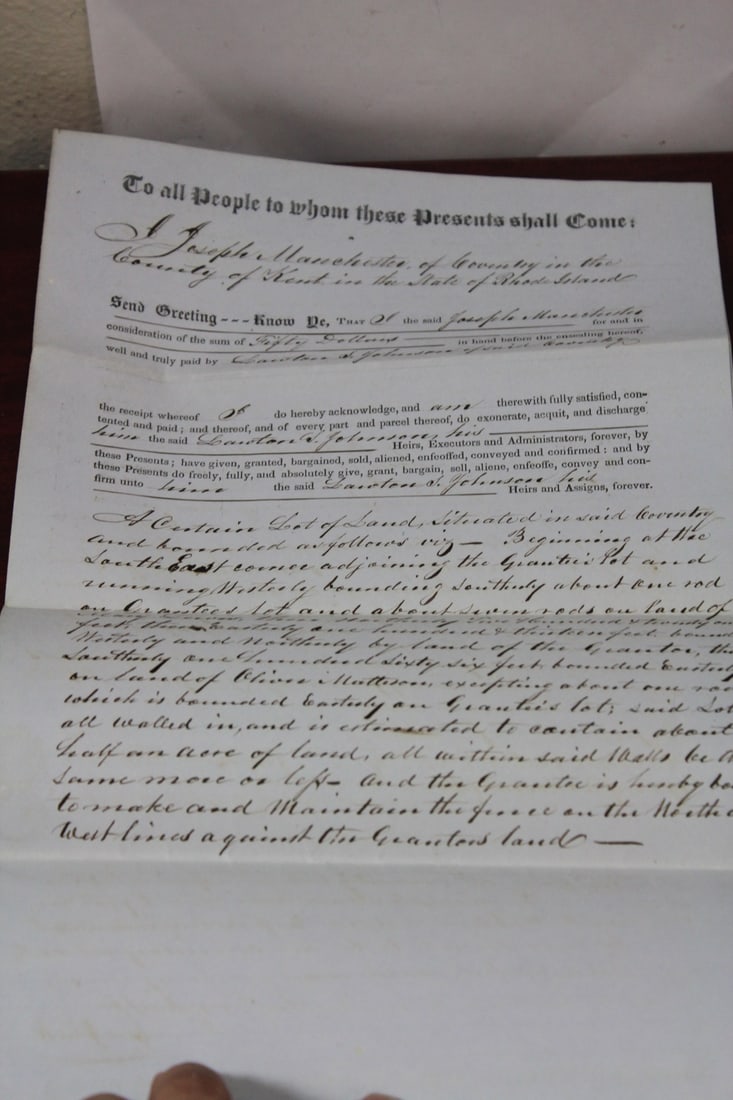 To all People to whom these Presents shall Come:
I Joseph Manchester, of Coventry in the
County of Kent in the State of Rhode Island
Send Greeting --- Know Ye, THAT I the said Joseph Manchester
for and in
consideration of the sum of Fifty Dollars in hand before the ensealing hereof,
well and truly paid by Lawton I. Johnson of said Coventry
the receipt whereof I do hereby acknowledge, and am therewith fully satisfied, con-
tented and paid; and thereof, and of every part and parcel thereof, do exonerate, acquit, and discharge
him the said Lawton I. Johnson, his
Heirs, Executors and Administrators, forever, by
these Presents; have given, granted, bargained, sold, aliened, enfeoffed, conveyed and confirmed: and by
these Presents do freely, fully, and absolutely give, grant, bargain, sell, aliene, enfeoffe, convey and con-
firm unto him the said Lawton I. Johnson his
Heirs and Assigns, forever.
A Certain Lot of Land, Situated in said Coventry
and bounded as follows viz — Beginning at the
South East corner adjoining the Grantee's lot and
running Westerly bounding Southerly about one rod
on Grantees lot and about seven rods on land of
feet, then Easterly one hundred & thirteen feet bound
Westerly and Northerly by land of the Grantor, the
Southerly one hundred Sixty six feet bounded Easterly
on land of Oliver Matteson, excepting about one rod
which is bounded Easterly on Grantee's lot; said Lot
all walled in, and is estimated to contain about
half an acre of land, all within said Walls be
same more or less— And the Grantee is hereby bo
to make and Maintain the fence on the North
West lines against the Grantors land —